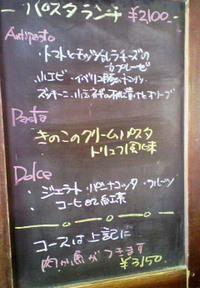 ー パスタランチ ¥2,100-
Antipasto
・トマトとモッツァレラチーズの
カプレーゼ
・小エビ・イベリコ
ズッキーニ・
Pasta
きのこのクリームパスタ
トリュフ風味
Dolce
・ジェラート パンナコッタ・フルーツ
・コーヒー or 紅茶
コースは上記に
肉か魚がつきます
¥3,150.